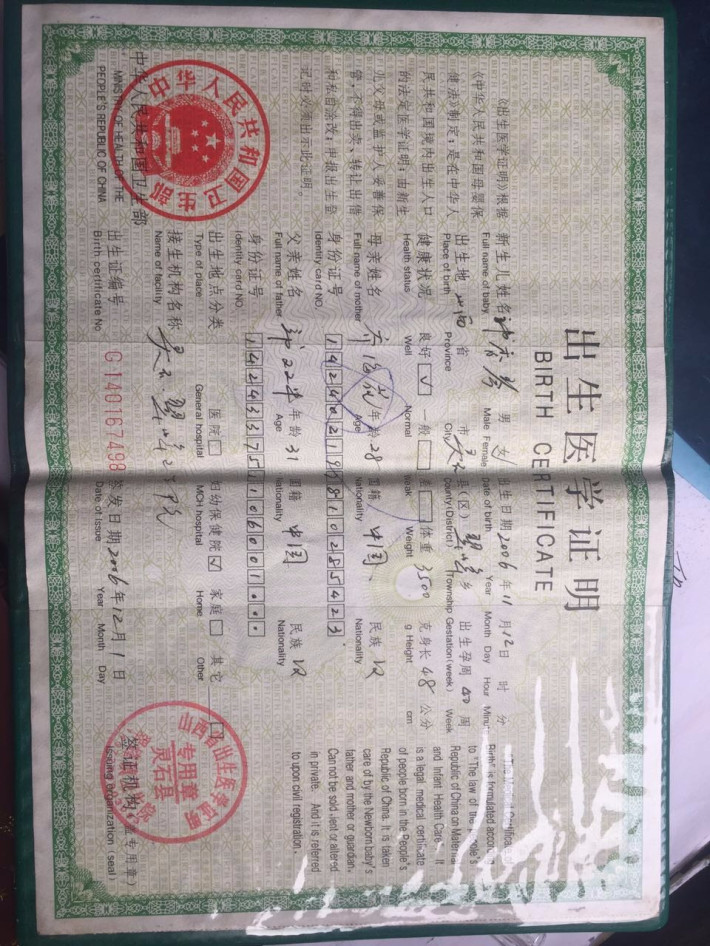 出生医学证明
BIRTH CERTIFICATE
《出生医学证明》根据
《中华人民共和国母婴保
健法》制定，是在中华人
民共和国境内出生人口
的法定医学证明，由新生
儿父母或监护人妥善保
管，不得出卖、转让、出借
和私自涂改，申报出生登
记时必须出示此证明。
中华人民共和国卫生部
MINISTRY OF HEALTH OF THE
PEOPLE'S REPUBLIC OF CHINA
中华人民共和国卫生部
新生儿姓名 男 女 出生日期 2006 年 11 月 12 日 时 分
Full name of baby Male Female Date of birth Year Month Day Hour Minute
出生地 山西 省 市 灵石 县(区) 翠峰 乡 出生孕周 40 周
Place of birth Province City County(District) Township Gestation(week) Week
健康状况 良好 ✓ 一般 差 体重 3500 克 身长 48 公分
Health status Well Normal Weak Weight g Height cm
母亲姓名 年龄 28 国籍 中国 民族 汉
Full name of mother Age Nationality Nationality
身份证号
Identity card NO.
父亲姓名 年龄 31 国籍 中国 民族 汉
Full name of father Age Nationality Nationality
身份证号
Identity card NO.
出生地点分类 医院 妇幼保健院 ✓ 家庭 其它
Type of place General hospital MCH hospital Home Other
接生机构名称
Name of facility
出生证编号 G140167498 签发日期 2006 年 12 月 1 日
Birth certificate No. Date of issue Year Month Day
签证机构
Issuing organization (seal)
山西省出生医学证明
专用章
灵石县
Birth" is formulated according
to "The law of the People's
Republic of China on Maternal
and Infant Health Care". It
is a legal medical certificate
of people born in the People's
Republic of China. It is taken
care of by the Newborn baby's
father and mother or guardian.
Can not be sold, lent or altered
in private. And it is referred
to upon civil registration.